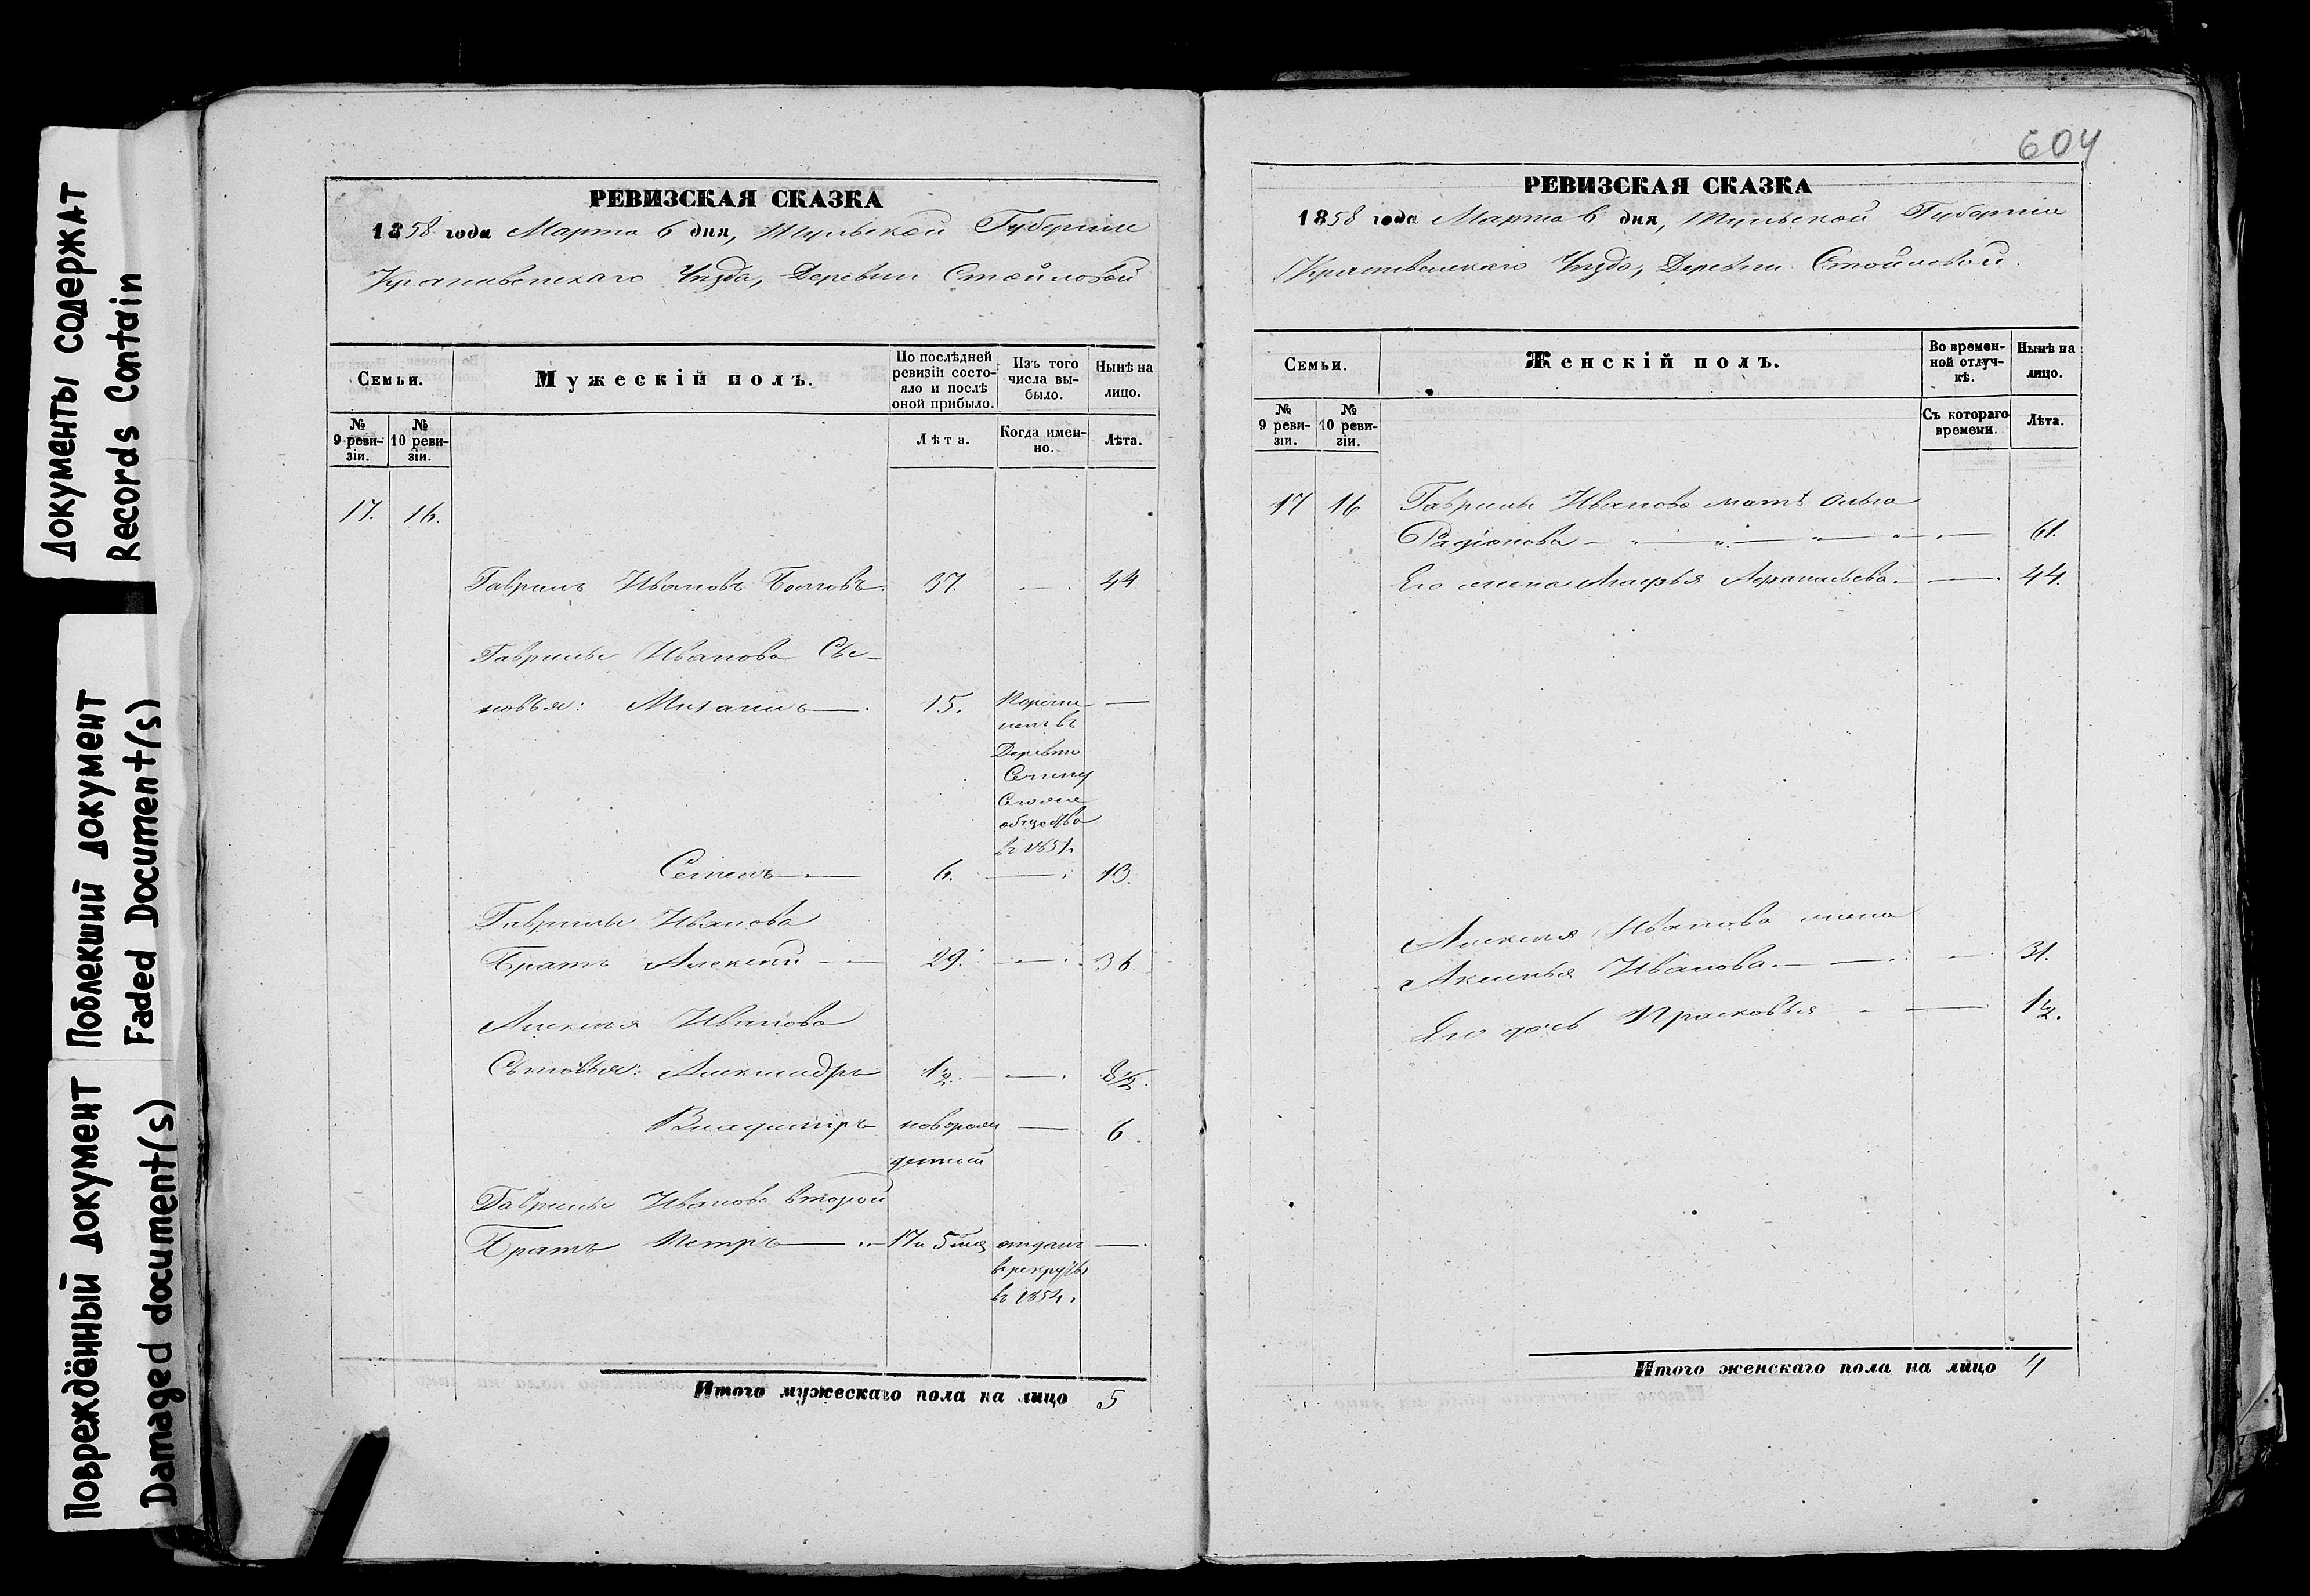 Документы содержат
Records Contain
Поблекший документ
Faded Document(s)
Повреждённый документ
Damaged document(s)
РЕВИЗСКАЯ СКАЗКА
1858 года Марта 6 дня, Тульской Губернии
Крапивенскаго Уѣзда, Деревни Стойловой
Семьи.
Мужескій полъ.
По послѣдней ревизіи состояло и послѣ оной прибыло.
Изъ того числа выбыло.
Нынѣ на лицо.
№ 9 ревизіи.
№ 10 ревизіи.
Лѣта.
Когда именно.
Лѣта.
17. 16.
Гаврилъ Ивановъ 37. — 44
Гаврилы Иванова Сы-
новья: Михаилъ — 15. —
Деревню
общества
въ 1851.
Семенъ — 6. — 13.
Гаврилы Иванова
Братъ Алексѣй — 29. — 36
Алексѣя Иванова
Сыновья: Александръ 1/2. — 8 1/2.
Владиміръ новорож — 6.
денный
Гаврилы Иванова второй
Братъ Петръ — 17 и 5 мѣ отданъ —
въ рекруты
въ 1854.
Итого мужескаго пола на лицо 5
604
РЕВИЗСКАЯ СКАЗКА
1858 года Марта 6 дня, Тульской Губерніи
Крапивенскаго Уѣзда, Деревни Стойловой.
Семьи.
Женскій полъ.
Во временной отлучкѣ.
Нынѣ на лицо.
№ 9 ревизіи.
№ 10 ревизіи.
Съ котораго времени.
Лѣта.
17 16 Гаврилы Иванова мать Ольга
Радіонова — 61.
Его жена Марфья — 44.
Алексѣя Иванова жена
Аксинья Иванова. — 31.
Его дочь Прасковья — 1/2.
Итого женскаго пола на лицо 4